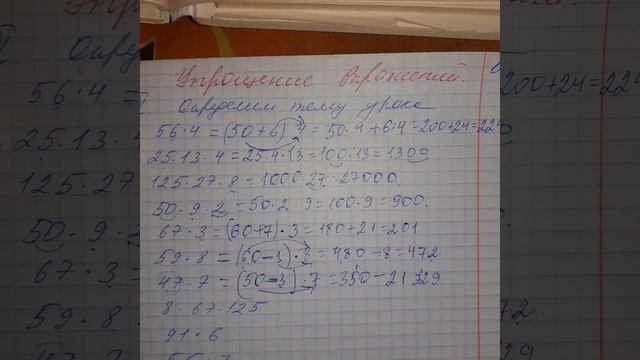 Упрощение выражений.
I. Определим тему урока
56·4 = (50+6)·4 = 50·4+6·4=200+24=224
25·13·4 = 25·4·13=100·13=1300
125·27·8 = 1000·27=27000.
50·9·2 = 50·2·9=100·9=900.
67·3 = (60+7)·3=180+21=201
59·8 = (60-1)·8=480-8=472
47·7 = (50-3)·7=350-21=329
8·67·125
91·6